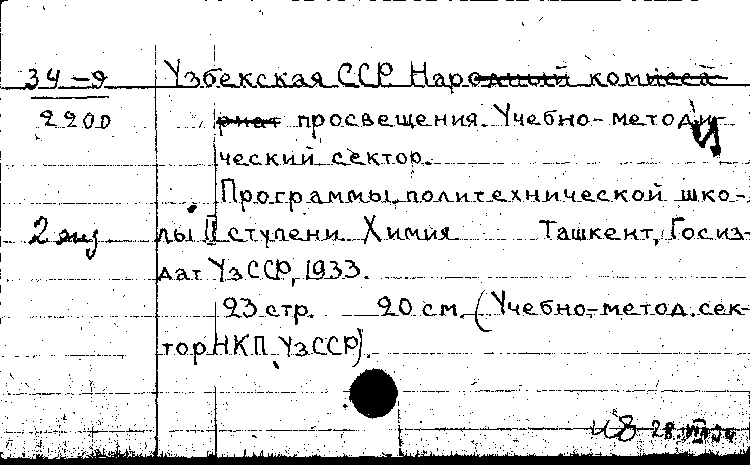 34-9
2200
2 экз
Узбекская ССР. Народный комисса-
риат просвещения. Учебно-методи-
ческий сектор.
Программы политехнической шко-
лы II ступени. Химия Ташкент, Госиз-
дат УзССР, 1933.
23 стр. 20 см. (Учебно-метод. сек-
тор НКП УзССР).